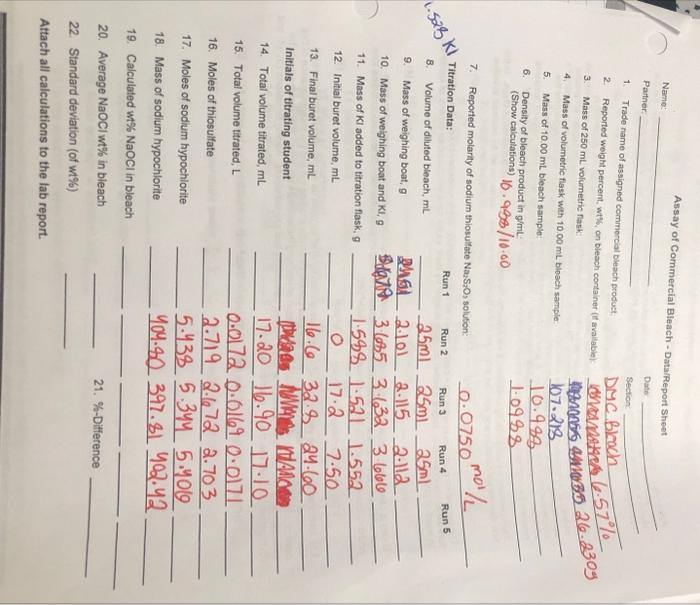 Assay of Commercial Bleach - Data/Report Sheet
Name: Date:
Partner: Section:
1. Trade name of assigned commercial bleach product: DMC Bleach
2. Reported weight percent, wt%, on bleach container (if available): 6.57%
3. Mass of 250 mL volumetric flask: 26.230g
4. Mass of volumetric flask with 10.00 mL bleach sample: 107.218
5. Mass of 10.00 mL bleach sample: 10.988
6. Density of bleach product in g/mL: 1.0988
(Show calculations) 10.988/10.00
7. Reported molarity of sodium thiosulfate Na2S2O3 solution: 0.0750 mol/L
1.528 KI
Titration Data: Run 1 Run 2 Run 3 Run 4 Run 5
8. Volume of diluted bleach, mL 25ml 25ml 25ml
9. Mass of weighing boat, g 2.101 2.115 2.112
10. Mass of weighing boat and KI, g 3.685 3.632 3.666
11. Mass of KI added to titration flask, g 1.588 1.521 1.552
12. Initial buret volume, mL 0 17.2 7.50
13. Final buret volume, mL 16.6 32.8 24.60
Initials of titrating student
14. Total volume titrated, mL 17.20 16.90 17.10
15. Total volume titrated, L 0.0172 0.0169 0.0171
16. Moles of thiosulfate 2.719 2.672 2.703
17. Moles of sodium hypochlorite 5.438 5.344 5.406
18. Mass of sodium hypochlorite 404.80 397.81 402.42
19. Calculated wt% NaOCl in bleach
20. Average NaOCl wt% in bleach 21. %-Difference
22. Standard deviation (of wt%)
Attach all calculations to the lab report.